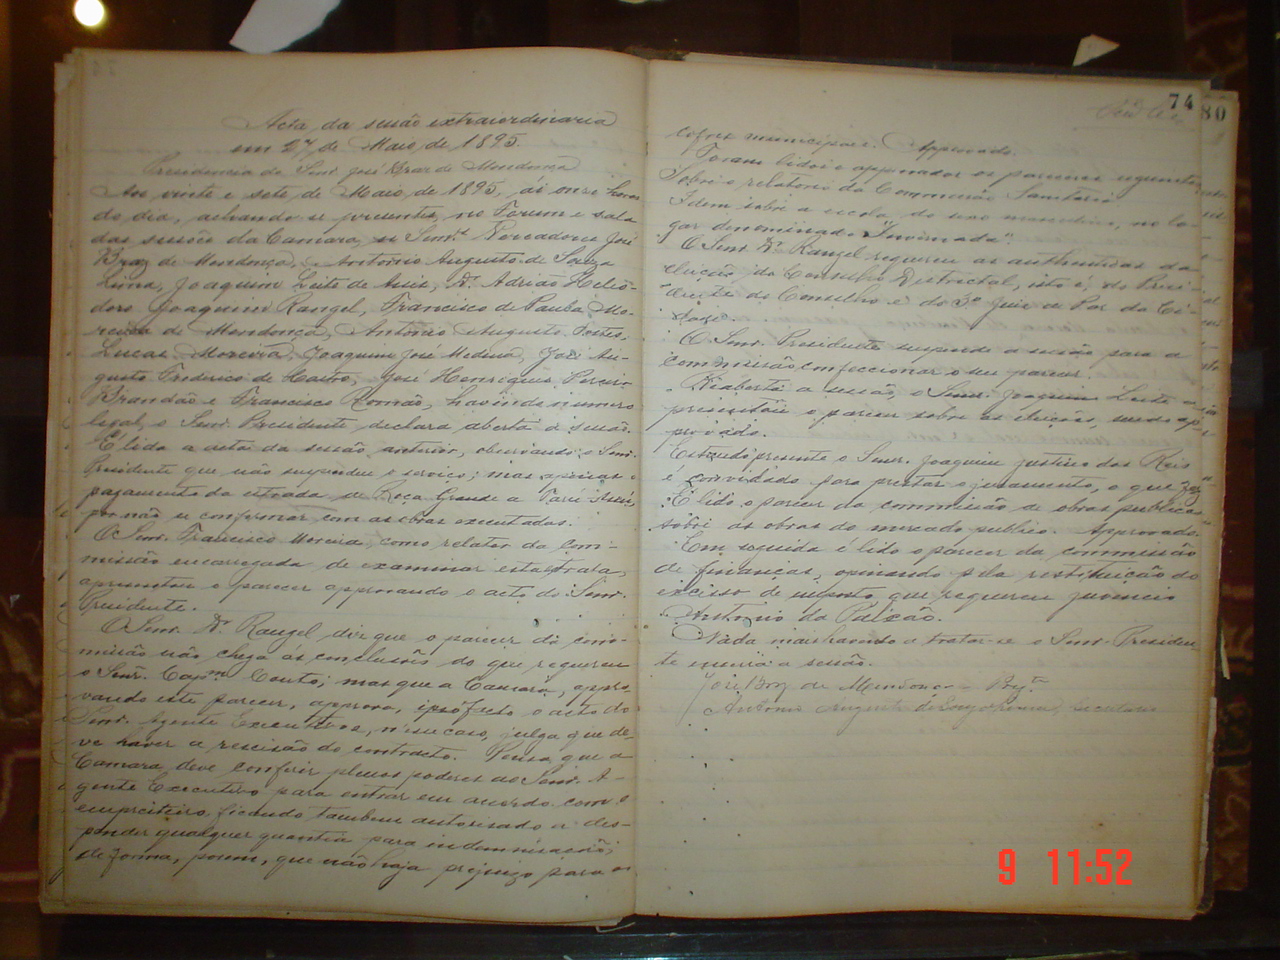 Acta da sessão extraordinaria
em 27 de Maio de 1895.
Presidencia do Senr. José Braz de Mendonça
Aos vinte e sete de Maio de 1895, ás onze horas
do dia, achando-se presentes, no Forum e sala
das sessões da Camara, os Senrs. Vereadores José
Braz de Mendonça, Antonio Augusto de Souza
Lima, Joaquim Leite de Assis, Dr. Adrião Helio-
doro Joaquim Rangel, Francisco de Paula Mo-
reira de Mendonça, Antonio Augusto
Lucas Moreira, Joaquim José Medina, José Au-
gusto Frederico de Castro, José Henriques Pereira
Brandão e Francisco Romão, havendo numero
legal, o Senr. Presidente declara aberta a sessão.
É lida a acta da sessão anterior, observando o Senr.
Presidente que não suspendeu o serviço; mas apenas o
pagamento da estrada de Roça Grande a Tarú-Assú,
por não se conformar com as obras executadas.
O Senr. Francisco Moreira, como relator da com-
missão encarregada de examinar esta estrada,
apresentou o parecer approvando o acto do Senr.
Presidente.
O Senr. Dr. Rangel diz que o parecer da com-
missão não chega ás conclusões do que requereu
o Senr. Capm. Couto; mas que a Camara, appro-
vando este parecer, approva, ipso facto o acto do
Senr. Agente Executivo, n'esse caso, julga que de-
ve haver a rescisão do contracto. Pensa que a
Camara deve conferir plenos poderes ao Senr. A-
gente Executivo para entrar em acordo com o
empreiteiro, ficando tambem autorisado a des-
pender qualquer quantia para indemnisação;
de forma, porem, que não haja prejuizo para os
74
80
cofres municipaes. Approvado.
Foram lidos e approvados os pareceres seguintes:
Sobre o relatorio da Commissão Sanitaria
Idem sobre a escola do sexo masculino, no lo-
gar denominado "Invernada".
O Senr. Dr. Rangel requereu as authenticas da
eleição do Conselho Districtal, isto é, do Presi-
dente do Conselho e do 3º Juiz de Paz da Ci-
dade.
O Senr. Presidente suspende a sessão para a
commissão confeccionar o seu parecer.
Reaberta a sessão, o Senr. Joaquim Leite
presentou o parecer sobre as eleições, sendo ap-
provado.
Estando presente o Senr. Joaquim Justino dos Reis
é convidado para prestar o juramento, o que faz.
É lido o parecer da commissão de obras publicas
sobre as obras do mercado publico. Approvado.
Em seguida é lido o parecer da commissão
de finanças, opinando pela restituição do
excesso de imposto que requereu Juvencio
Antonio da Paixão.
Nada mais havendo a tratar-se o Senr. Presiden-
te encerra a sessão.
José Braz de Mendonça
Antonio Augusto de Souza Lima, Secretario
9 11:52